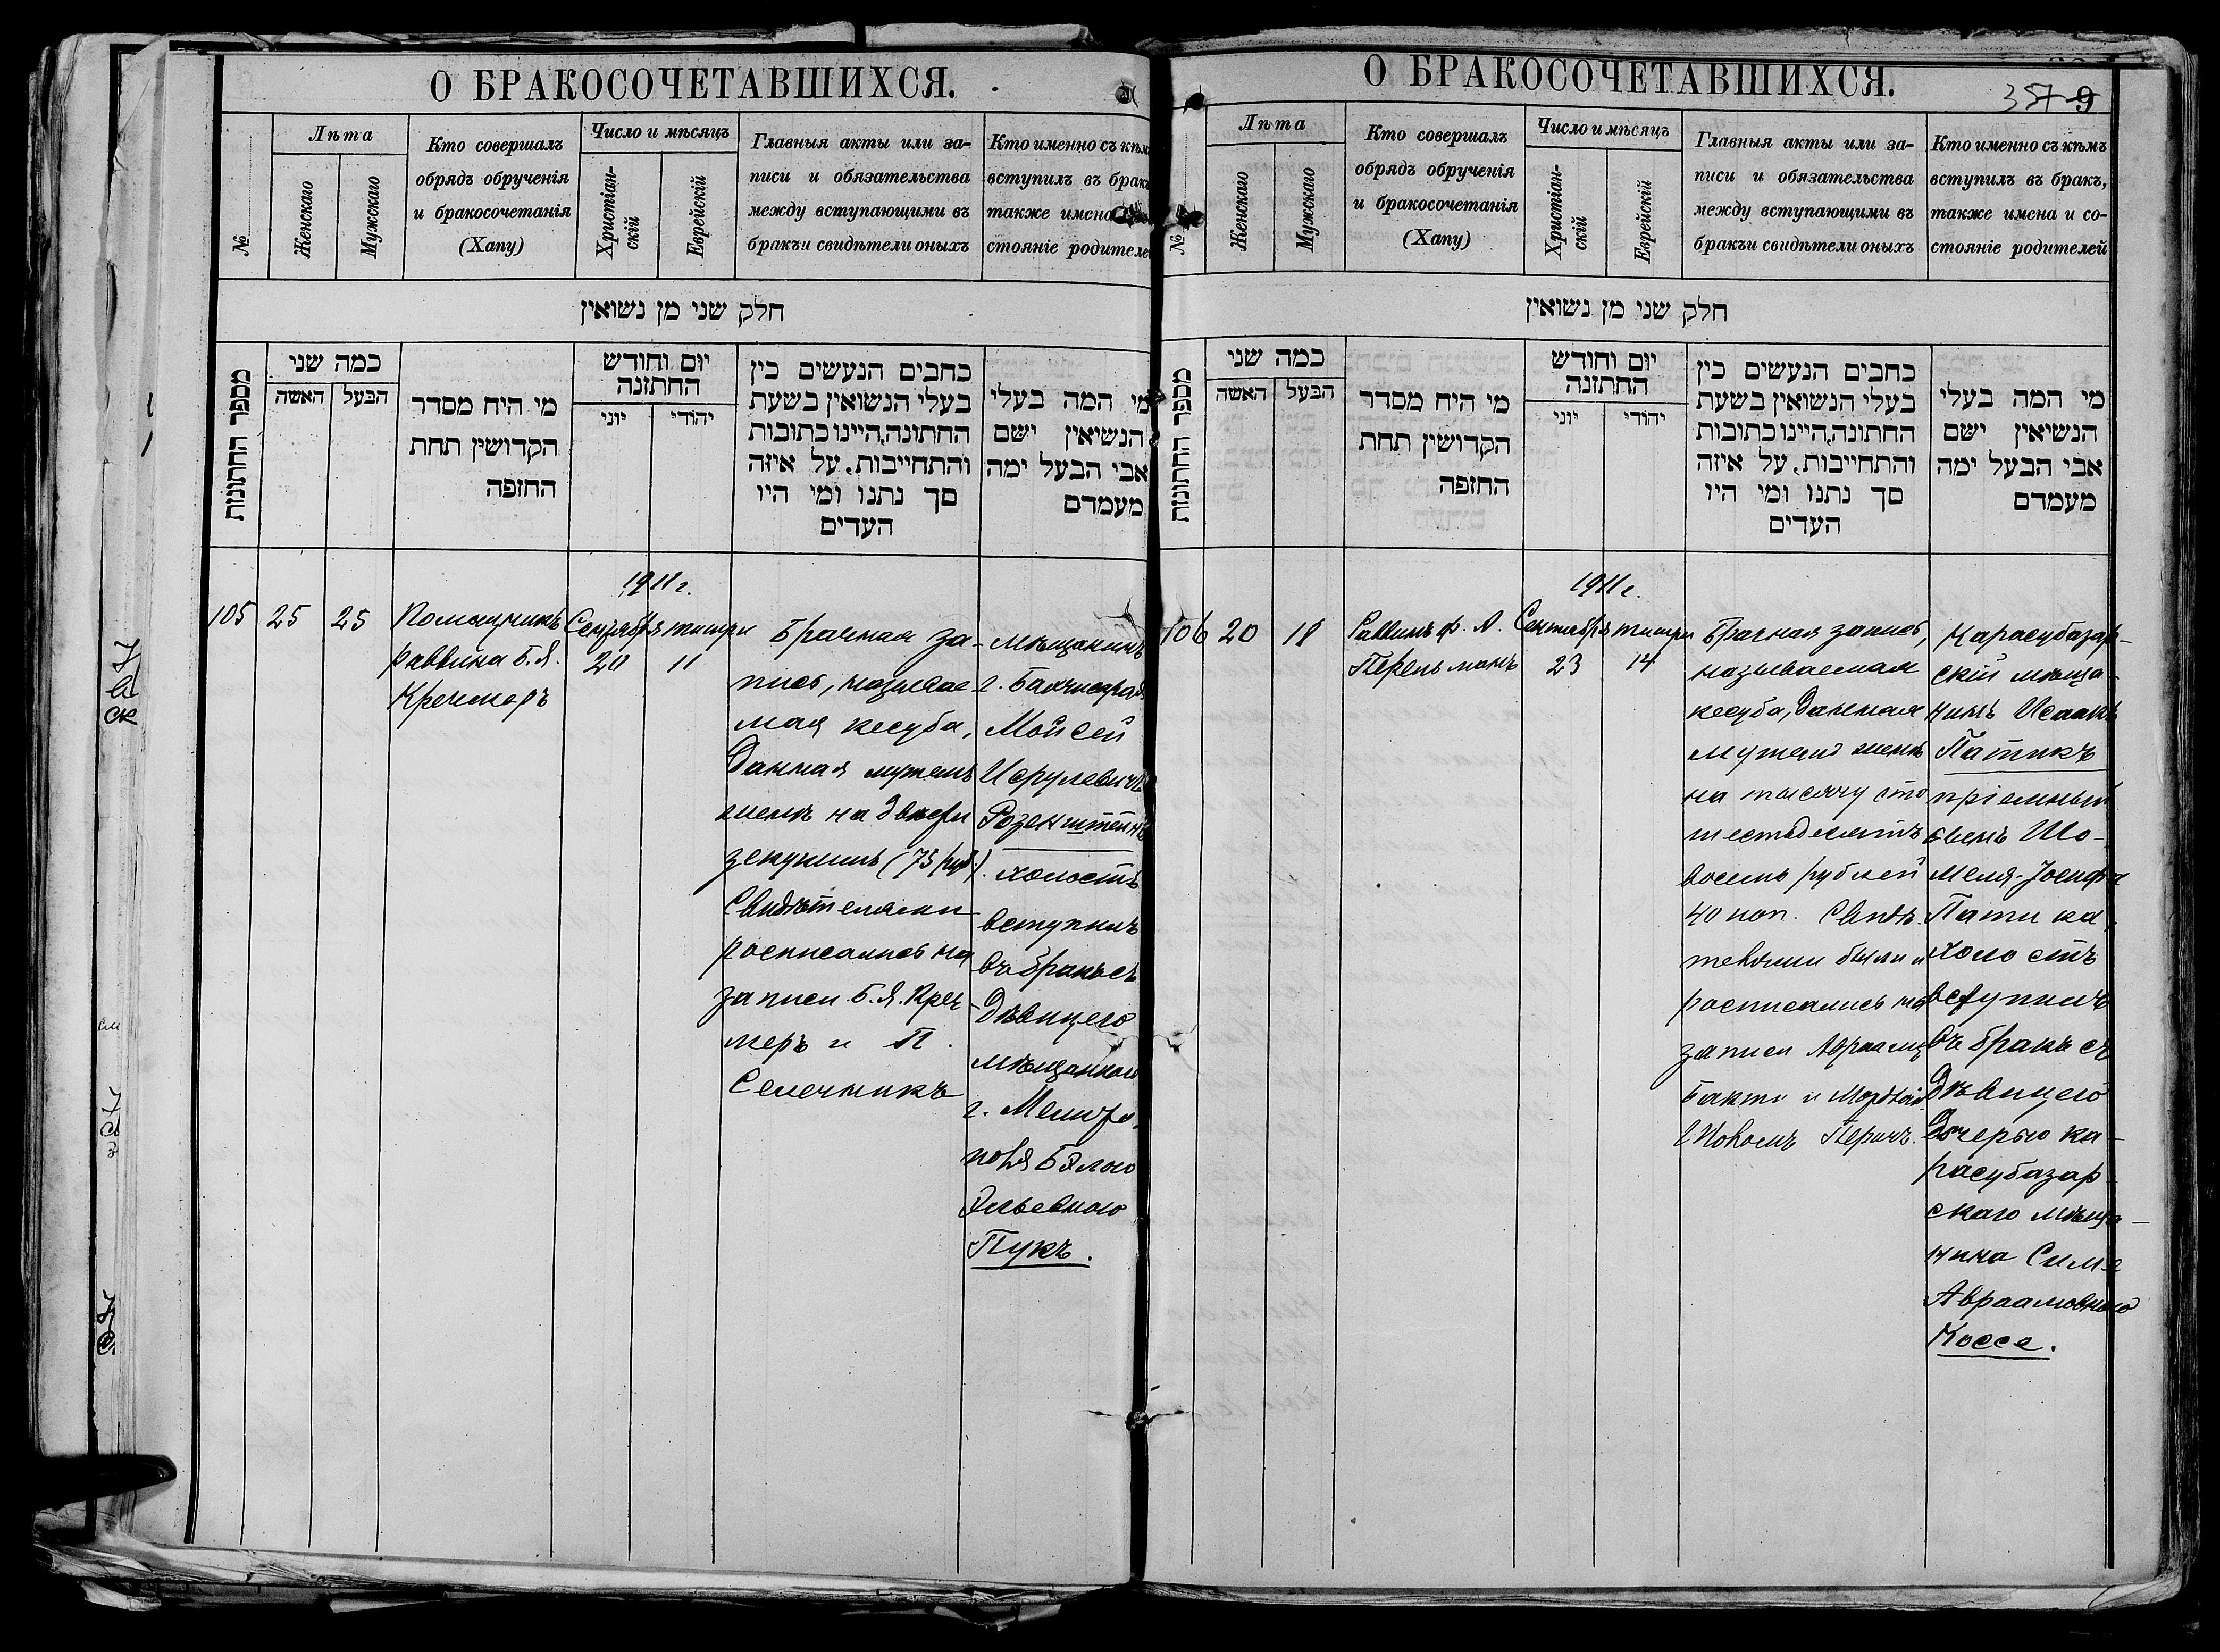 О БРАКОСОЧЕТАВШИХСЯ.
№
Лѣта
Женскаго
Мужскаго
Кто совершалъ
обрядъ обрученія
и бракосочетанія
(Хапу)
Число и мѣсяцъ
Христіан-
скій
Еврейскій
Главныя акты или за-
писи и обязательства
между вступающими въ
бракъи свидѣтели оныхъ
Кто именно съ кѣмъ
вступилъ въ бракъ
также имена
стояніе родителей
חלק שני מן נשואין
מספר החתונות
כמה שני
האשה
הבעל
מי היח מסדר
הקדושין תחת
החופה
יום וחודש
החתונה
יוני
יהודי
כחבים הנעשים בין
בעלי הנשואין בשעת
החתונה,היינו כתובות
והתחייבות. על איזה
סך נתנו ומי היו
העדים
מי המה בעלי
הנשיאין ישם
אבי הבעל ימה
מעמדם
1911 г.
105
25
25
Помощникъ
раввина Б. Я.
Кречмеръ
Сентября
20
тишри
11
Брачная за-
пись, называе-
мая кесуба,
данная мужемъ
женѣ на двѣсти
зекукимъ (75 руб.)
Свидѣтелями
росписались на
записи Б. Я. Креч-
меръ и П.
Селечникъ
Мѣщанинъ
г. Бахчисарая
Мойсей
Исрулевичъ
Розенштейнъ
холостъ
вступилъ
въ бракъ съ
дѣвицею
мѣщанкою
г. Мелито-
поля Бэлою
Эльевною
Пукъ.
О БРАКОСОЧЕТАВШИХСЯ.
357
9
№
Лѣта
Женскаго
Мужскаго
Кто совершалъ
обрядъ обрученія
и бракосочетанія
(Хапу)
Число и мѣсяцъ
Христіан-
скій
Еврейскій
Главныя акты или за-
писи и обязательства
между вступающими въ
бракъи свидѣтели оныхъ
Кто именно съ кѣмъ
вступилъ въ бракъ,
также имена и со-
стояніе родителей
חלק שני מן נשואין
מספר החתונות
כמה שני
האשה
הבעל
מי היח מסדר
הקדושין תחת
החופה
יום וחודש
החתונה
יוני
יהודי
כחבים הנעשים בין
בעלי הנשואין בשעת
החתונה,היינו כתובות
והתחייבות. על איזה
סך נתנו ומי היו
העדים
מי המה בעלי
הנשיאין ישם
אבי הבעל ימה
מעמדם
1911 г.
106
20
18
Раввинъ Ф. А.
Перельманъ
Сентября
23
тишри
14
Брачная запись,
называемая
кесуба, данная
мужемъ женѣ
на тысячу сто
шестьдесятъ
восемь рублей
40 коп. Свидѣ-
телями были и
росписались на
записи
Бакши и Мордхай
Карасубазар-
скій мѣща-
нинъ Исаакъ
Патикъ
пріемный
сынъ Шо-
меля-Іосифа
Патика,
холостъ
вступилъ
въ бракъ съ
дѣвицею
дочерью ка-
расубазар-
скаго мѣща-
нина Симе
Авраамовною
Коссе.